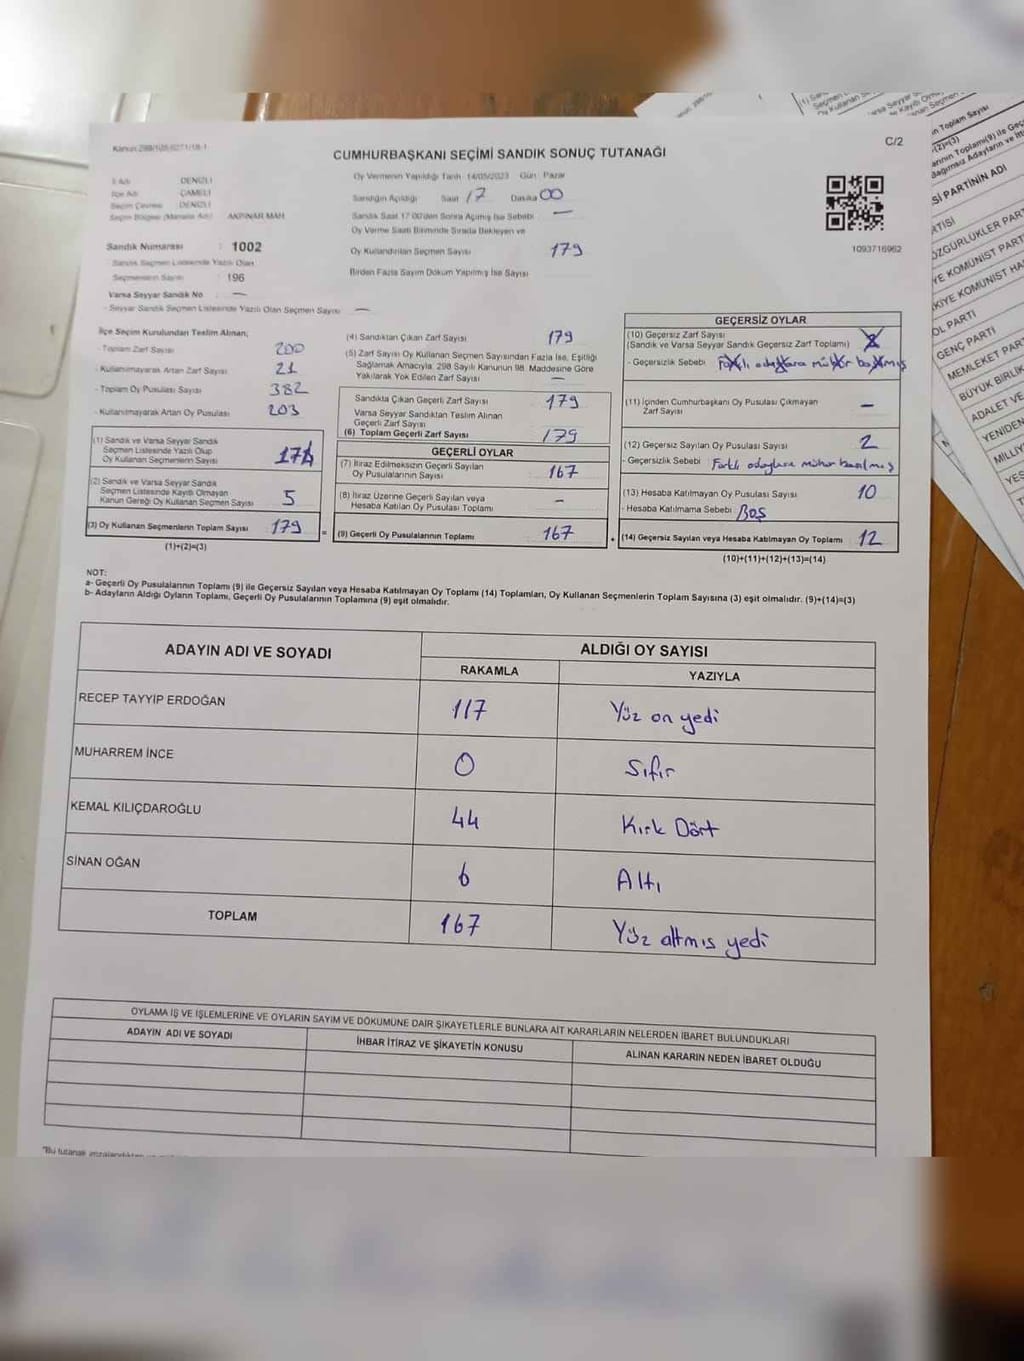 C/2
CUMHURBAŞKANI SEÇİMİ SANDIK SONUÇ TUTANAĞI
İl Adı DENİZLİ
İlçe Adı ÇAMELİ
Seçim Çevresi DENİZLİ
Seçim Bölgesi (Mahalle Adı) AKPINAR MAH
Sandık Numarası : 1002
Sandık Seçmen Listesinde Yazılı Olan
Seçmenlerin Sayısı : 196
Varsa Seyyar Sandık No —
- Seyyar Sandık Seçmen Listesinde Yazılı Olan Seçmen Sayısı —
Oy Vermenin Yapıldığı Tarih 14/05/2023 Gün Pazar
Sandığın Açıldığı Saat 17 Dakika 00
Sandık Saat 17.00'den Sonra Açılmış İse Sebebi —
Oy Verme Saati Bitiminde Sırada Bekleyen ve
Oy Kullandırılan Seçmen Sayısı 179
Birden Fazla Sayım Döküm Yapılmış İse Sayısı
1093716962
İlçe Seçim Kurulundan Teslim Alınan;
- Toplam Zarf Sayısı 200
- Kullanılmayarak Artan Zarf Sayısı 21
- Toplam Oy Pusulası Sayısı 382
- Kullanılmayarak Artan Oy Pusulası 203
(1) Sandık ve Varsa Seyyar Sandık
Seçmen Listesinde Yazılı Olup
Oy Kullanan Seçmenlerin Sayısı 174
(2) Sandık ve Varsa Seyyar Sandık
Seçmen Listesinde Kayıtlı Olmayan
Kanun Gereği Oy Kullanan Seçmen Sayısı 5
(3) Oy Kullanan Seçmenlerin Toplam Sayısı 179
(1)+(2)=(3)
(4) Sandıktan Çıkan Zarf Sayısı 179
(5) Zarf Sayısı Oy Kullanan Seçmen Sayısından Fazla İse, Eşitliği
Sağlamak Amacıyla, 298 Sayılı Kanunun 98. Maddesine Göre
Yakılarak Yok Edilen Zarf Sayısı —
Sandıkta Çıkan Geçerli Zarf Sayısı 179
Varsa Seyyar Sandıktan Teslim Alınan
Geçerli Zarf Sayısı
(6) Toplam Geçerli Zarf Sayısı 179
GEÇERLİ OYLAR
(7) İtiraz Edilmeksizin Geçerli Sayılan
Oy Pusulalarının Sayısı 167
(8) İtiraz Üzerine Geçerli Sayılan veya
Hesaba Katılan Oy Pusulası Toplamı –
= (9) Geçerli Oy Pusulalarının Toplamı 167
GEÇERSİZ OYLAR
(10) Geçersiz Zarf Sayısı
(Sandık ve Varsa Seyyar Sandık Geçersiz Zarf Toplamı) 2
- Geçersizlik Sebebi Farklı adaylara mühür basılmış
(11) İçinden Cumhurbaşkanı Oy Pusulası Çıkmayan
Zarf Sayısı –
(12) Geçersiz Sayılan Oy Pusulası Sayısı 2
- Geçersizlik Sebebi Farklı adaylara mühür basılmış
(13) Hesaba Katılmayan Oy Pusulası Sayısı 10
- Hesaba Katılmama Sebebi Boş
+ (14) Geçersiz Sayılan veya Hesaba Katılmayan Oy Toplamı 12
(10)+(11)+(12)+(13)=(14)
NOT:
a- Geçerli Oy Pusulalarının Toplamı (9) ile Geçersiz Sayılan veya Hesaba Katılmayan Oy Toplamı (14) Toplamları, Oy Kullanan Seçmenlerin Toplam Sayısına (3) eşit olmalıdır. (9)+(14)=(3)
b- Adayların Aldığı Oyların Toplamı, Geçerli Oy Pusulalarının Toplamına (9) eşit olmalıdır.
ADAYIN ADI VE SOYADI ALDIĞI OY SAYISI
RAKAMLA YAZIYLA
RECEP TAYYİP ERDOĞAN 117 Yüz on yedi
MUHARREM İNCE 0 Sıfır
KEMAL KILIÇDAROĞLU 44 Kırk Dört
SİNAN OĞAN 6 Altı
TOPLAM 167 Yüz altmış yedi
OYLAMA İŞ VE İŞLEMLERİNE VE OYLARIN SAYIM VE DÖKÜMÜNE DAİR ŞİKAYETLERLE BUNLARA AİT KARARLARIN NELERDEN İBARET BULUNDUKLARI
ADAYIN ADI VE SOYADI İHBAR İTİRAZ VE ŞİKAYETİN KONUSU ALINAN KARARIN NEDEN İBARET OLDUĞU
"Bu tutanak
Sİ PARTİNİN ADI
GENÇ PARTİ
MEMLEKET PAR
BÜYÜK BİRLİK
ADALET VE
YENİDEN
MİLLİY